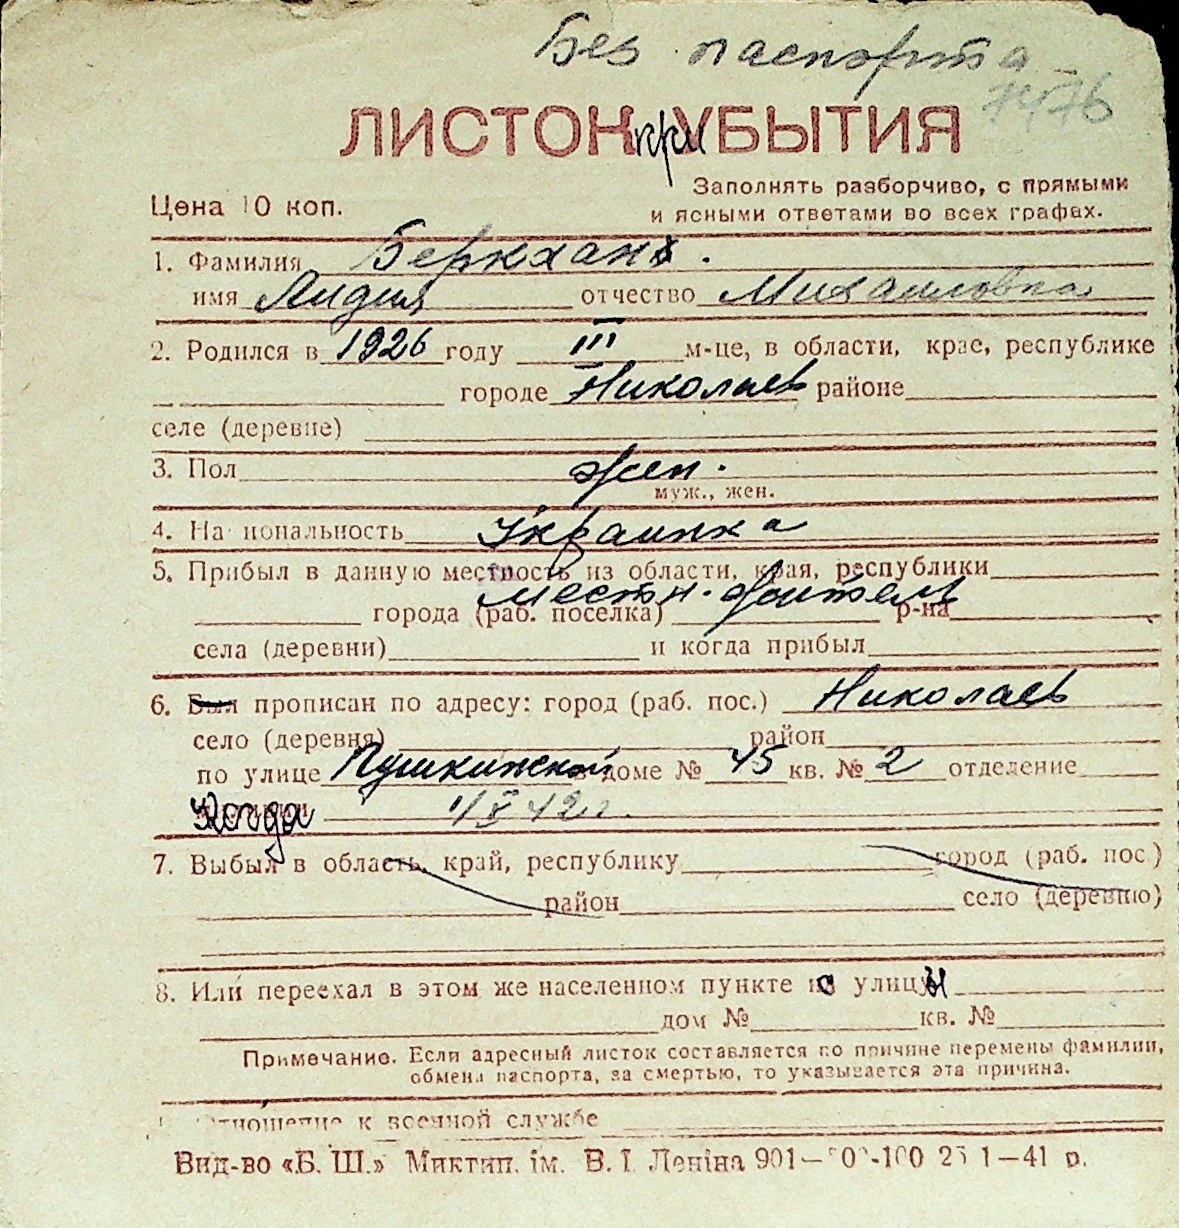 Без паспорта
7476
ЛИСТОК при УБЫТИЯ
Заполнять разборчиво, с прямыми
Цена 10 коп. и ясными ответами во всех графах.
1. Фамилия Беркхан.
имя Лидия отчество Михайловна
2. Родился в 1926 году III м-це, в области, крае, республике
городе Николаев районе
селе (деревне)
3. Пол жен.
муж., жен.
4. Национальность Украинка
5. Прибыл в данную местность из области, края, республики
местн. житель
города (раб. поселка) р-на
села (деревни) и когда прибыл
6. Был прописан по адресу: город (раб. пос.) Николаев
село (деревня) район
по улице Пушкинской в доме № 45 кв. № 2 отделение
Когда 1/X 42 г.
7. Выбыл в область, край, республику город (раб. пос.)
район село (деревню)
8. Или переехал в этом же населенном пункте с улицы
дом № кв. №
Примечание. Если адресный листок составляется по причине перемены фамилии,
обмена паспорта, за смертью, то указывается эта причина.
Отношение к военной службе
Вид-во «Б. Ш.» Миктип. ім. В. І. Леніна 901—